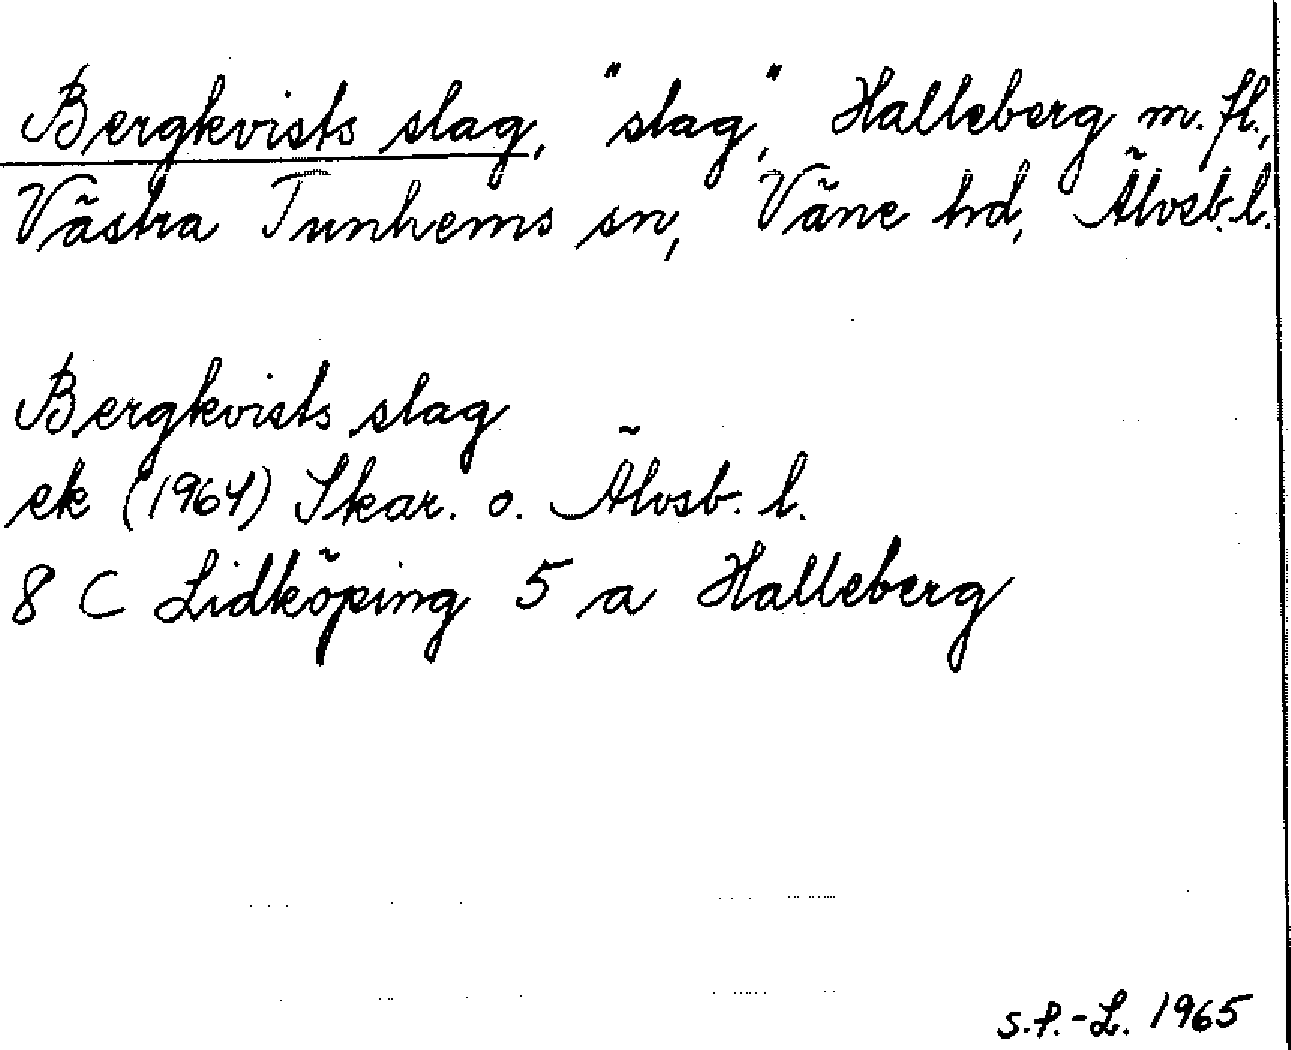 Bergkvists slag, "slag", Halleberg m. fl.,
Västra Tunhems sn, Väne hd, Älvsb. l.
Bergkvists slag
ek (1964) Skar. o. Älvsb. l.
8 C Lidköping 5 a Halleberg
S.P.-L. 1965